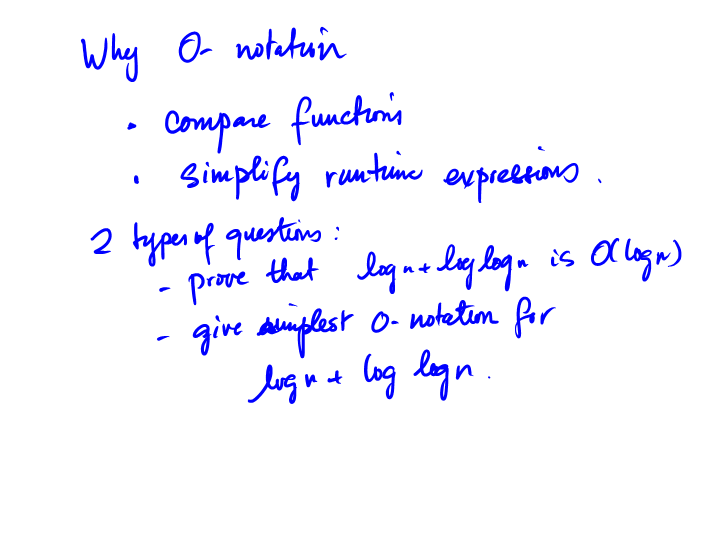 Why O- notation
• compare functions
• simplify runtime expressions.
2 types of questions:
- prove that log n + log log n is O(log n)
- give simplest O- notation for
log n + log log n.